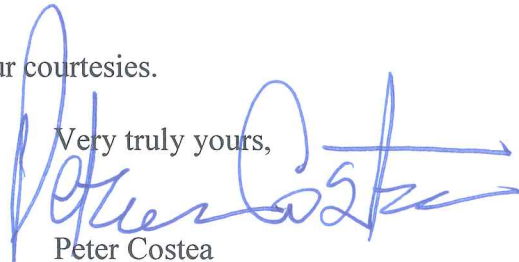 ur courtesies.
Very truly yours,
Peter Costea
Peter Costea